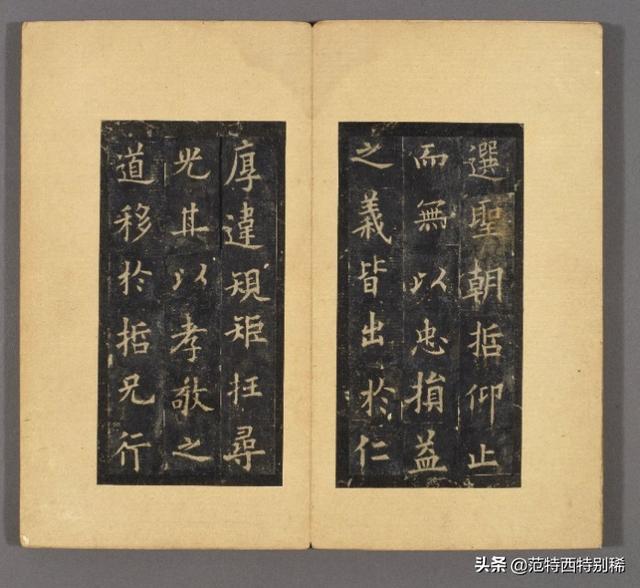 選聖朝哲仰止
而無以忠損益
之義皆出於仁
厚違規矩枉尋
光其以孝敬之
道移於哲兄行
头条 @范特西特别稀